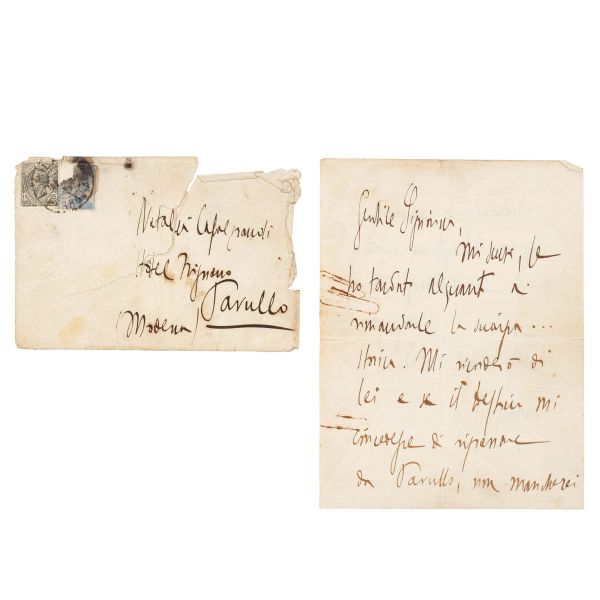 Natalia Casalgrandi
Hôtel Frignano
Pavullo
(Modena)
Gentile Signorina,
Mi scusi, se
ho tardato alquanto a
rimandarle la sciarpa...
storica. Mi ricorderò di
lei e se il destino mi
concedesse di ripassare
da Pavullo, non mancherei